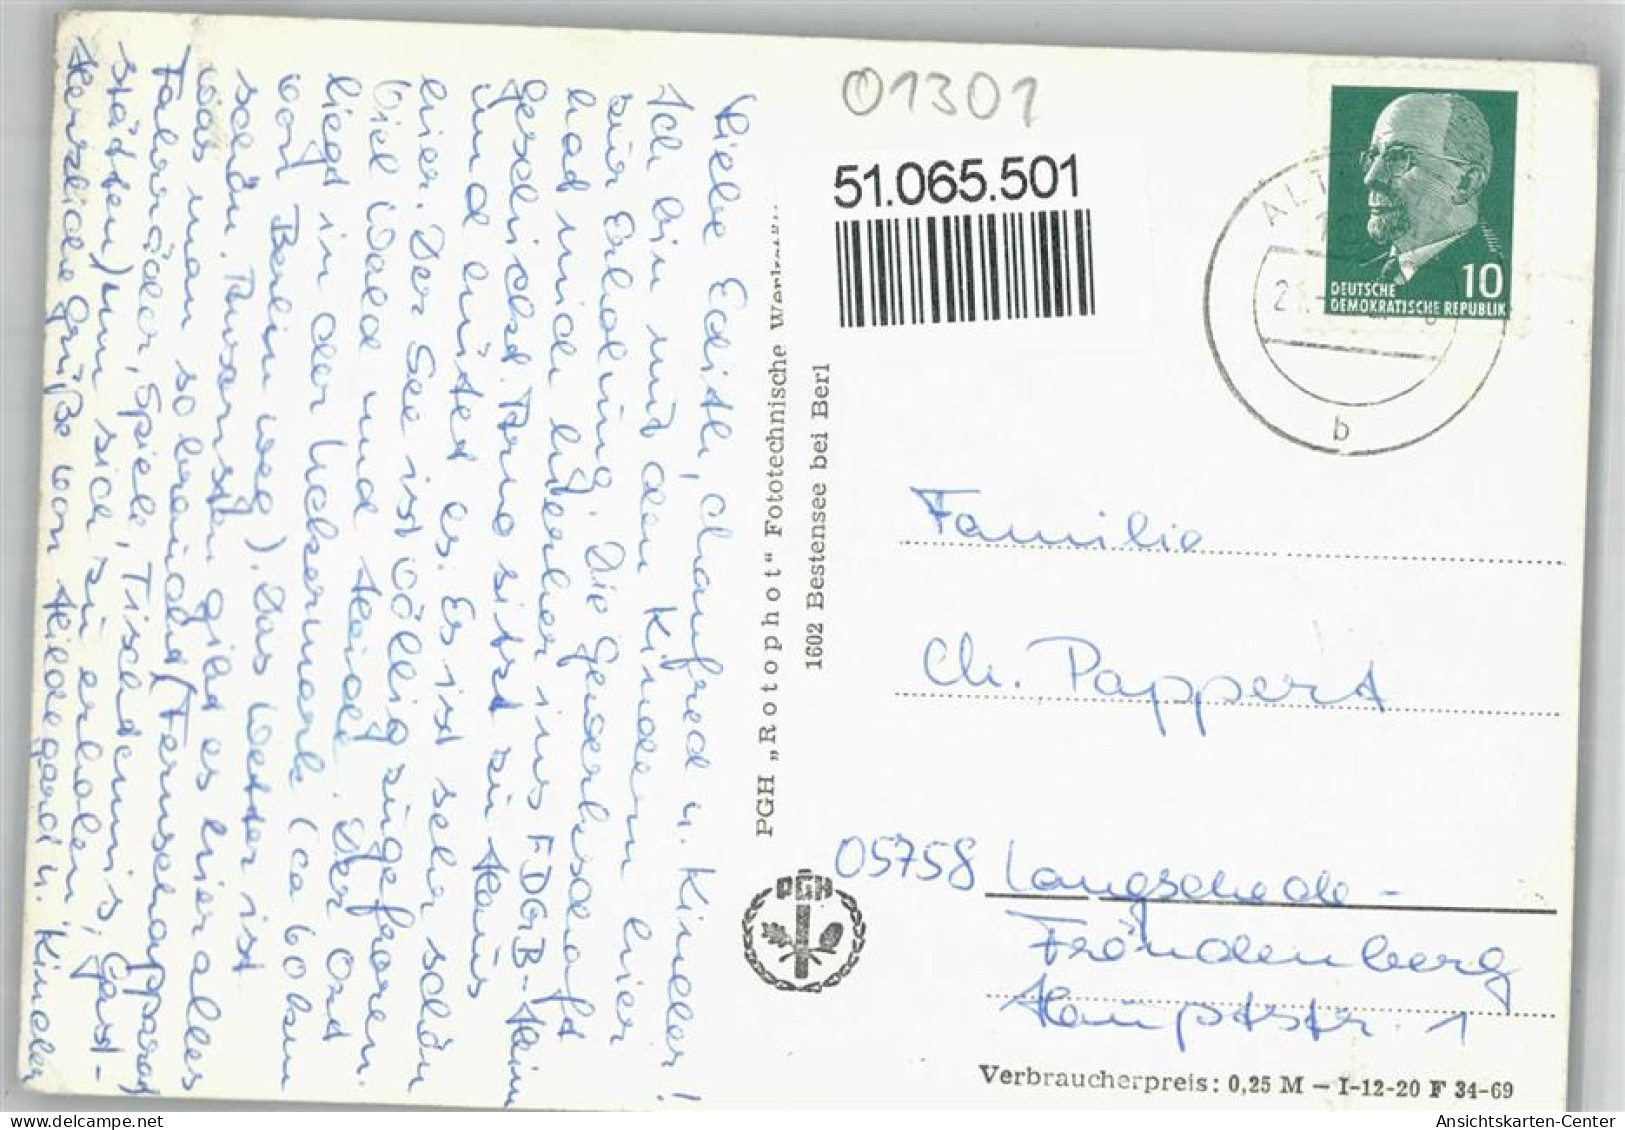 Liebe Edith, Manfred u. Kinder!
Ich bin mit den Kindern hier
zur Erholung. Die Gewerkschaft
hat mich hierher ins FDGB-Heim
geschickt. Arno sitzt zu Haus
und hütet es. Es ist sehr schön
hier. Der See ist völlig zugefroren.
Viel Wald und Heide. Der Ort
liegt in der Uckermark (ca 60 km
von Berlin weg). Das Wetter ist
schön. Ansonsten gibt es hier alles
was man so braucht (Fernsehapparat
Fahrräder, Spiele, Tischtennis, Gast-
stätten) um sich zu erholen.
Herzliche Grüße von Hildegard u. Kinder
PGH „Rotophot“ Fototechnische
1602 Bestensee bei Berl
PGH
01301
51.065.501
ALT
b
10
DEUTSCHE
DEMOKRATISCHE REPUBLIK
Familie
Ch. Pappert
05758 Langschede-
Fröndenberg
Hauptstr. 1
Verbraucherpreis: 0,25 M – I-12-20 F 34-69
Ansichtskarten-Center